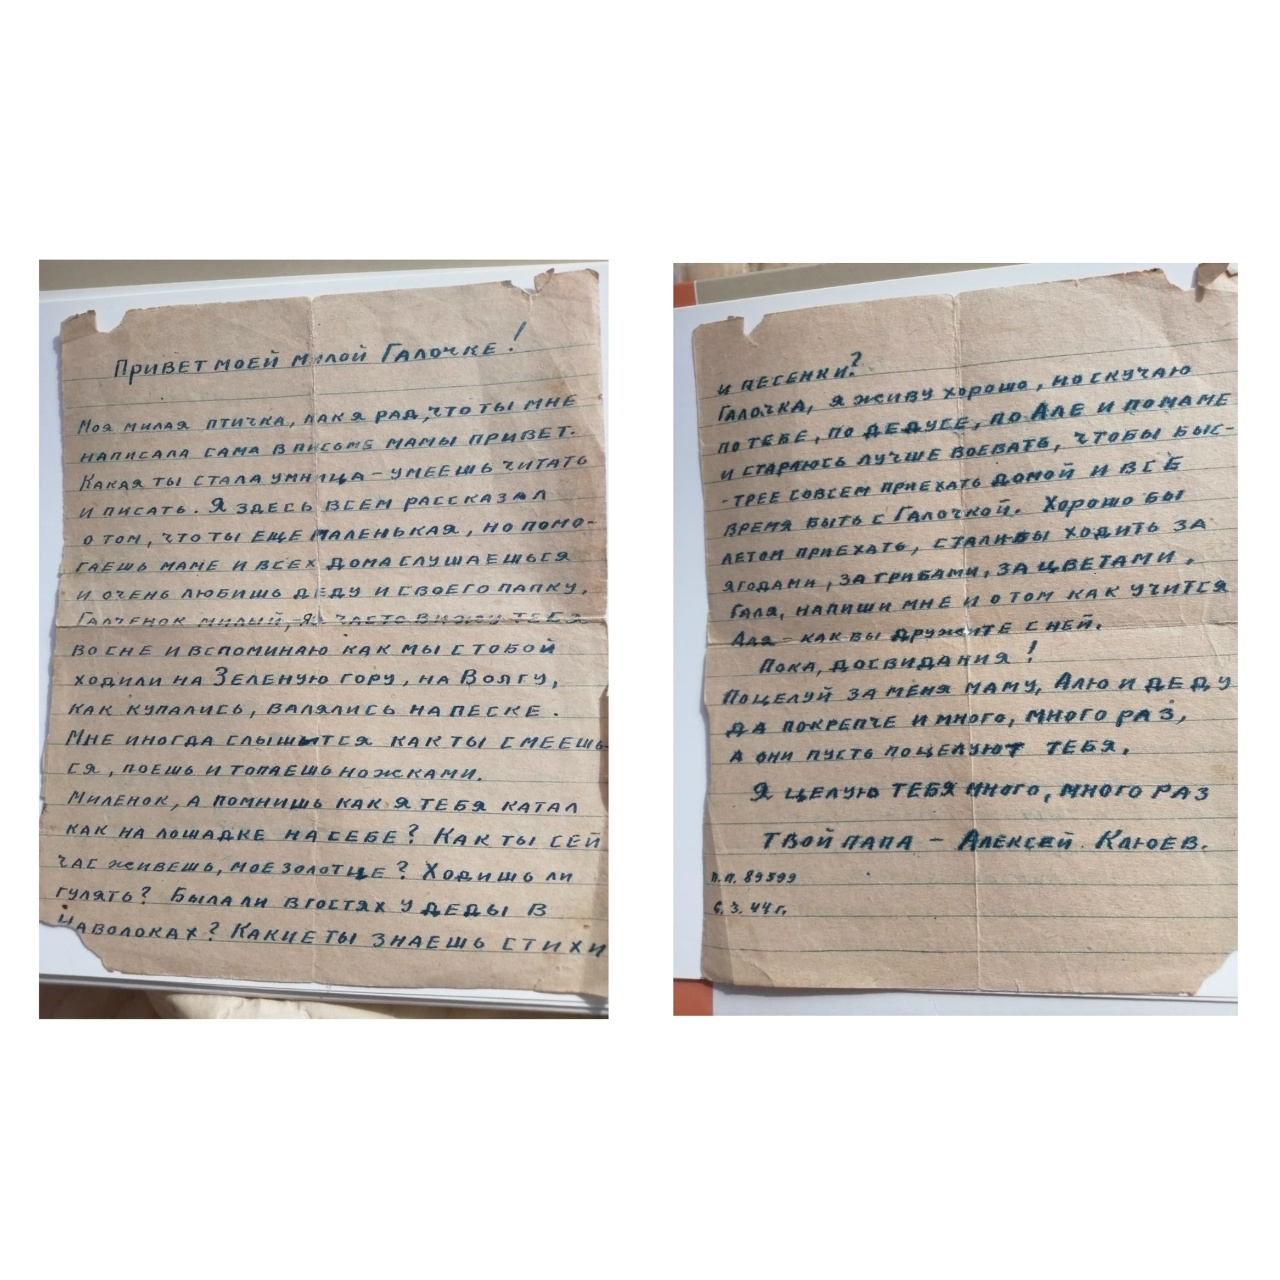 Привет моей милой Галочке!
Моя милая птичка, как я рад, что ты мне
написала сама в письме мамы привет.
Какая ты стала умница – умеешь читать
и писать. Я здесь всем рассказал
о том, что ты еще маленькая, но помо-
гаешь маме и всех дома слушаешься
и очень любишь деду и своего папку.
Галченок милый, я часто вижу тебя
во сне и вспоминаю как мы с тобой
ходили на Зеленую гору, на Волгу,
как купались, валялись на песке.
Мне иногда слышится как ты смеешь-
ся, поешь и топаешь ножками.
Миленок, а помнишь как я тебя катал
как на лошадке на себе? Как ты сей
час живешь, мое золотце? Ходишь ли
гулять? Была ли в гостях у деды в
Наволоках? Какие ты знаешь стихи
и песенки?
Галочка, я живу хорошо, но скучаю
по тебе, по дедусе, по Але и по маме
и стараюсь лучше воевать, чтобы быс-
-трее совсем приехать домой и всё
время быть с Галочкой. Хорошо бы
летом приехать, стали бы ходить за
ягодами, за грибами, за цветами,
Галя, напиши мне и о том как учится
Аля – как вы дружите с ней.
Пока, досвидания!
Поцелуй за меня маму, Алю и деду
да покрепче и много, много раз,
а они пусть поцелуют тебя.
Я целую тебя много, много раз
Твой папа – Алексей Клюев.
п.п. 89599
6.3.44г.